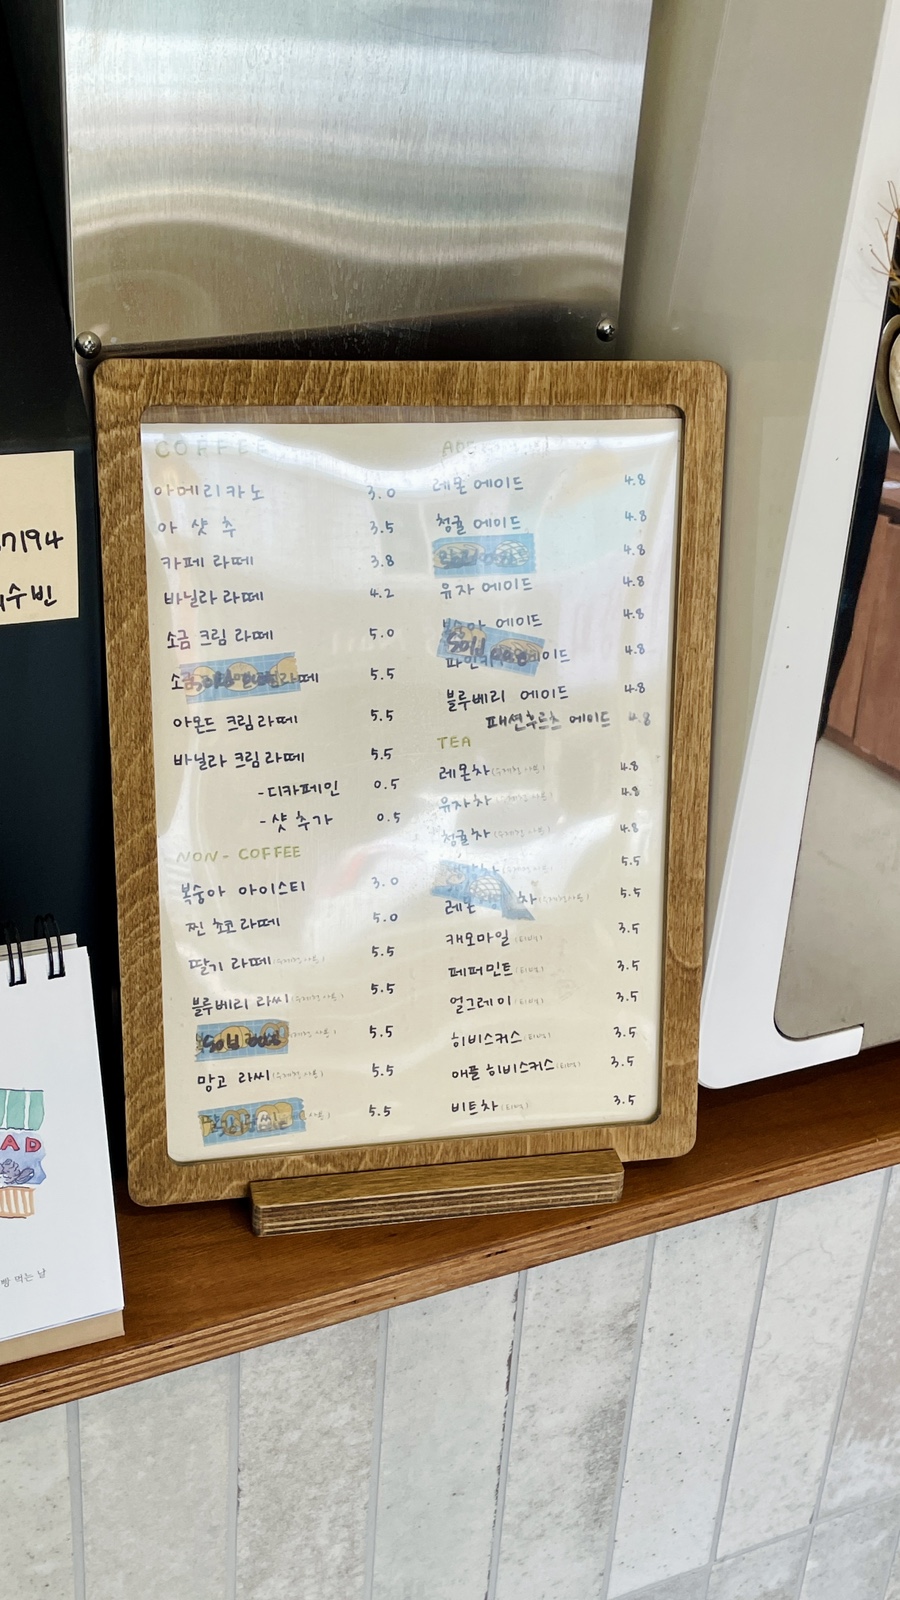 COFFEE
아메리카노 3.0
아 샷 추 3.5
카페 라떼 3.8
바닐라 라떼 4.2
소금 크림 라떼 5.0
라떼 5.5
아몬드 크림라떼 5.5
바닐라 크림라떼 5.5
-디카페인 0.5
-샷 추가 0.5
NON-COFFEE
복숭아 아이스티 3.0
찐 초코라떼 5.0
딸기 라떼 5.5
블루베리 라씨 5.5
Sold 5.5
망고 라씨 5.5
5.5
레몬 에이드 4.8
청귤 에이드 4.8
4.8
유자 에이드 4.8
에이드 4.8
Sold
에이드 4.8
블루베리 에이드 4.8
패션후르츠 에이드 4.8
TEA
레몬차 4.8
유자차 4.8
청귤차 4.8
5.5
레몬 차 5.5
캐모마일 3.5
페퍼민트 3.5
얼그레이 3.5
히비스커스 3.5
애플 히비스커스 3.5
비트차 3.5
7194
수빈
AD
빵 먹는 날